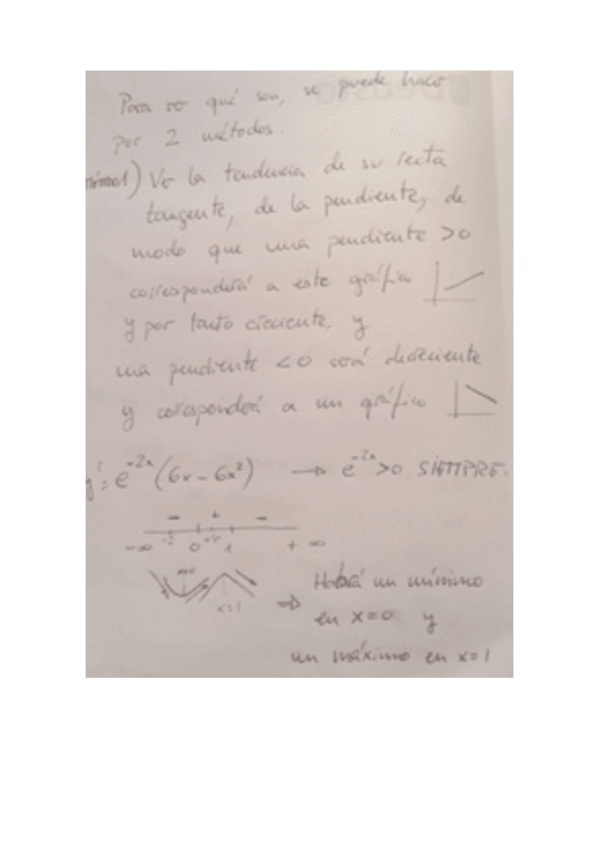 Para ver qué son, se puede hacer
por 2 métodos.
método 1) Ver la tendencia de su recta
tangente, de la pendiente, de
modo que una pendiente >0
corresponderá a este gráfico
y por tanto creciente, y
una pendiente <0 será decreciente
y corresponderá a un gráfico
y' = e^-2x (6x - 6x²) → e^-2x >0 SIEMPRE.
- + -
-∞ 0 1 +∞
x=0 x=1
⇒ Habrá un mínimo
en x=0 y
un máximo en x=1